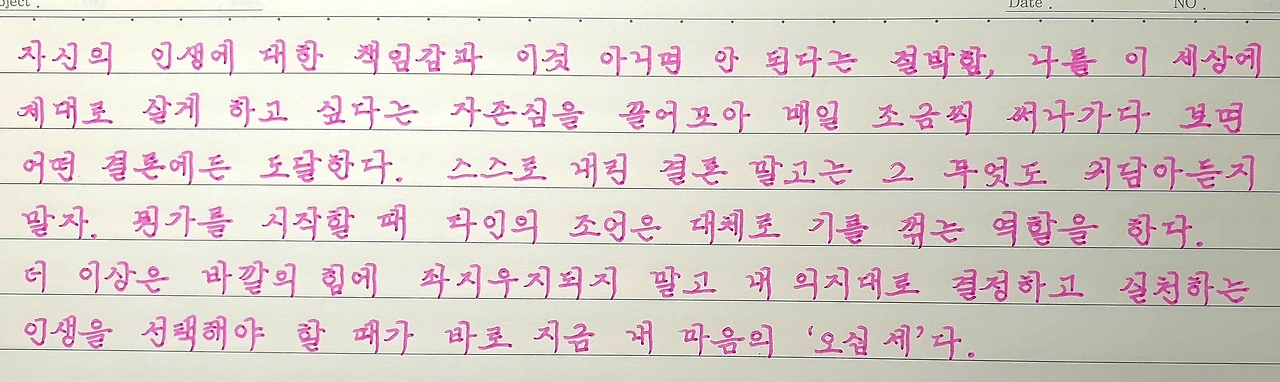 Date .
NO .
자신의 인생에 대한 책임감과 이것 아니면 안 된다는 절박함, 나를 이 세상에
제대로 살게 하고 싶다는 자존심을 끌어모아 매일 조금씩 써나가다 보면
어떤 결론에든 도달한다. 스스로 내린 결론 말고는 그 무엇도 귀담아듣지
말자. 뭔가를 시작할 때 타인의 조언은 대체로 기를 꺾는 역할을 한다.
더 이상은 바깥의 힘에 좌지우지되지 말고 내 의지대로 결정하고 실천하는
인생을 선택해야 할 때가 바로 지금 내 마음의 '오십 세'다.